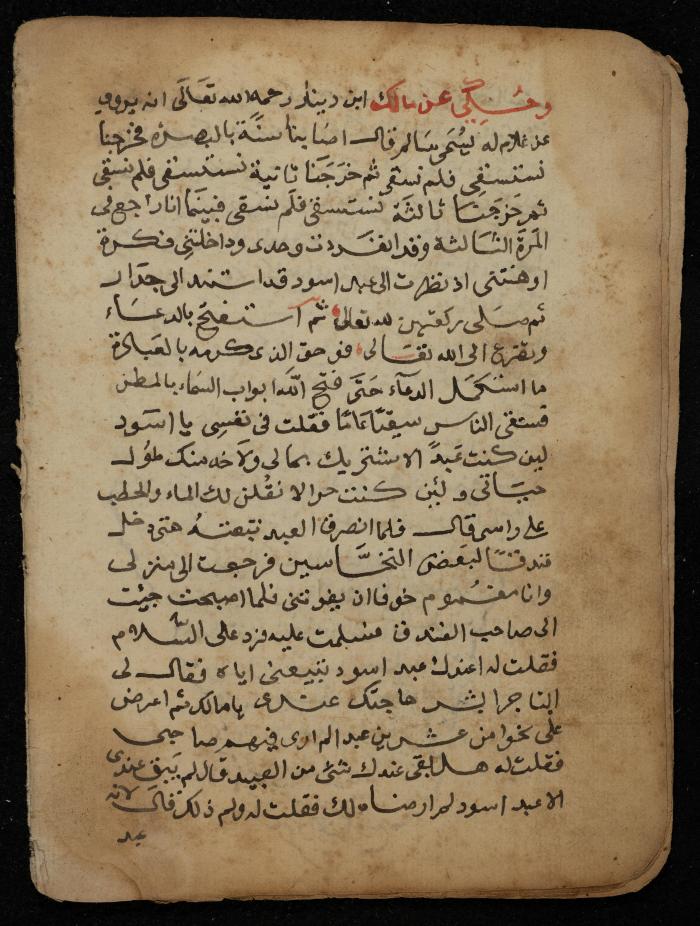 وحُكِيَ عن مالك ابن دينار رحمه الله تعالى انه يروي
عن غلام له يسُمى سَالم قال اصَابنا سنَة بالبصرة فخرجنا
نستسقي فلم نسقى ثم خرَجَنا ثانية نستسقى فلم نسقى
ثم خرَجَنا ثالثَة نستسقى فلم نسقى فبينمَا انا راجع في
المرَة الثالثة وقد انفردت وحدى وداخلتني فكرة
اوهنتنى اذ نظرت الى عبد اسود قد استند الى جدَار
ثم صَلى ركعتين لله تعالى ثم استفتح بالدعَاء
وتضرع الى الله تعَالى فوحق الذى كرمه بالعبَادة
ما استكمل الدعَاء حَتَّى فتح الله ابواب السَماء بالمطر
فسقى الناس سقيًا عَامًا فقلت في نفسِى يا اسَود
لين كنت عَبدً الاشتريك بمالى ولاخدمنك طوُل
حيَاتى ولئِن كنت حر الانقُلن لك الماء والحطب
على راسى قال فلما انصرف العبد تبَعتهُ حتى دخل
فندقًا لبعَض النخَّاسين فرجعت الى منزلى
وانا مغمُوم خوفا ان يفوتنى فلما اصبحت جيئت
الى صاحب الفندق فسلمت عليه فرد على السَّلام
فقلت له اعندك عبد اسود تبيعنى اياه فقال لى
ابشر حاجتك عندى يا مالك ثم اعرض
علَى نحوا من عشرين عبد الم ارى فيهم صاحبى
فقلت له هل بقى عندك شئ من العبيد قال لم يَبق عندى
الا عبد اسود لم ارضاه لك فقلت له ولم ذلك قال لانه
عبد